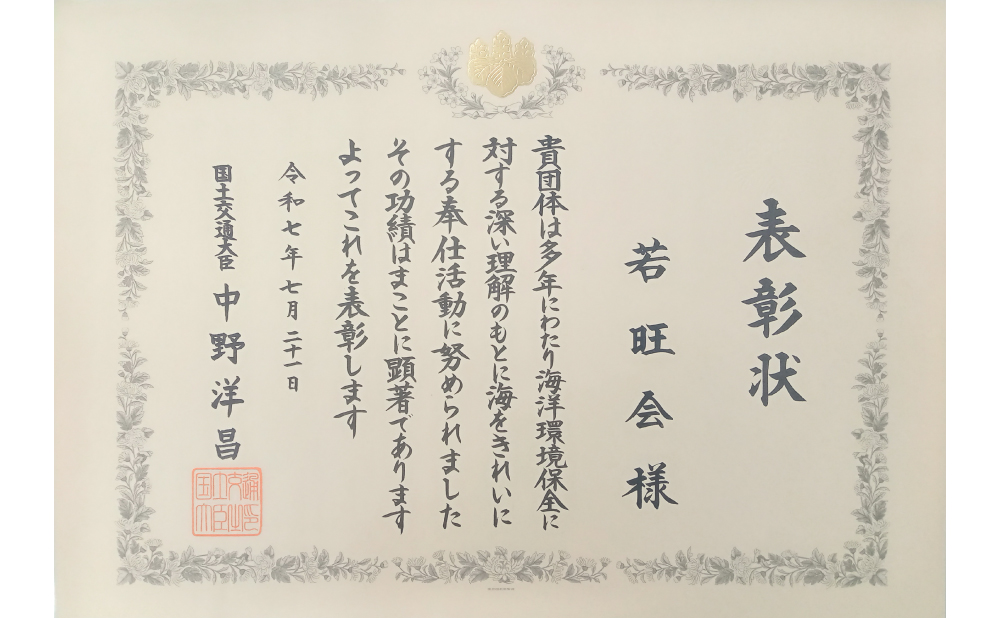 表彰状
若旺会様
貴団体は多年にわたり海洋環境保全に
対する深い理解のもとに海をきれいに
する奉仕活動に努められました
その功績はまことに顕著であります
よってこれを表彰します
令和七年七月二十一日
国土交通大臣 中野洋昌
国土交通大臣之印